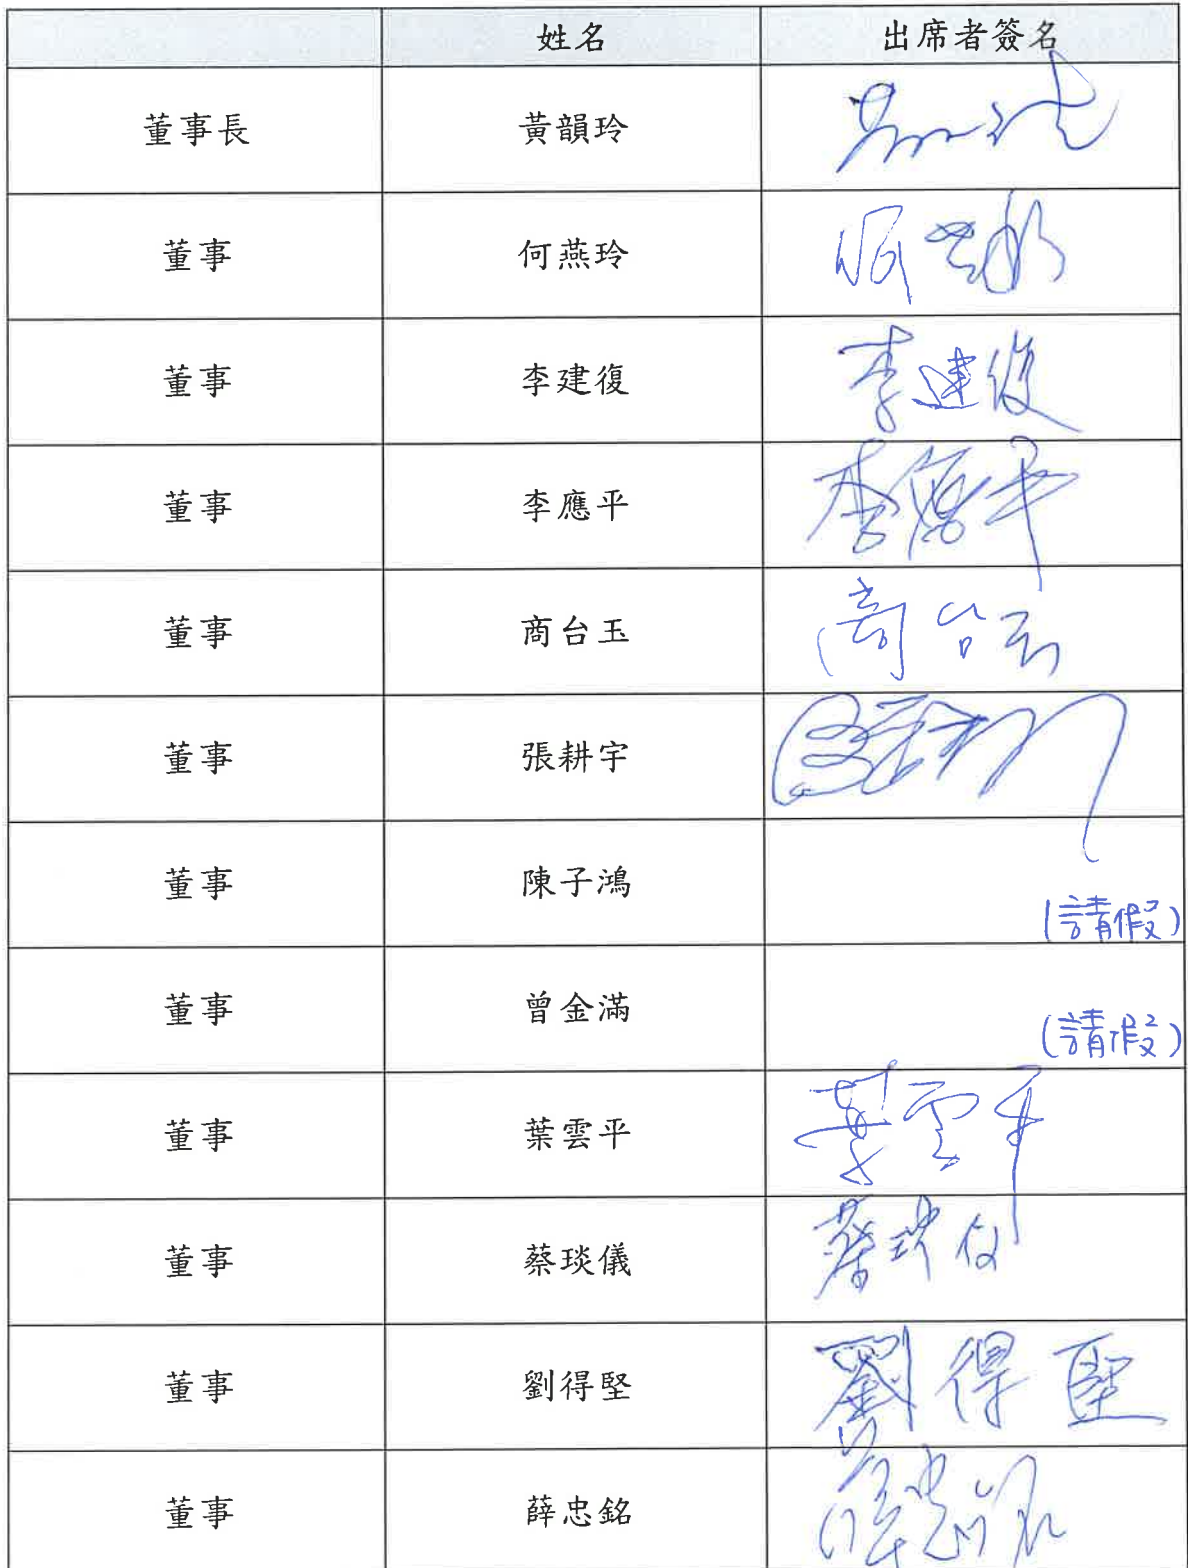 姓名 出席者簽名
董事長 黃韻玲
董事 何燕玲 何燕玲
董事 李建復 李建復
董事 李應平 李應平
董事 商台玉 商台玉
董事 張耕宇
董事 陳子鴻 (請假)
董事 曾金滿 (請假)
董事 葉雲平 葉雲平
董事 蔡琰儀 蔡琰儀
董事 劉得堅 劉得堅
董事 薛忠銘 薛忠銘